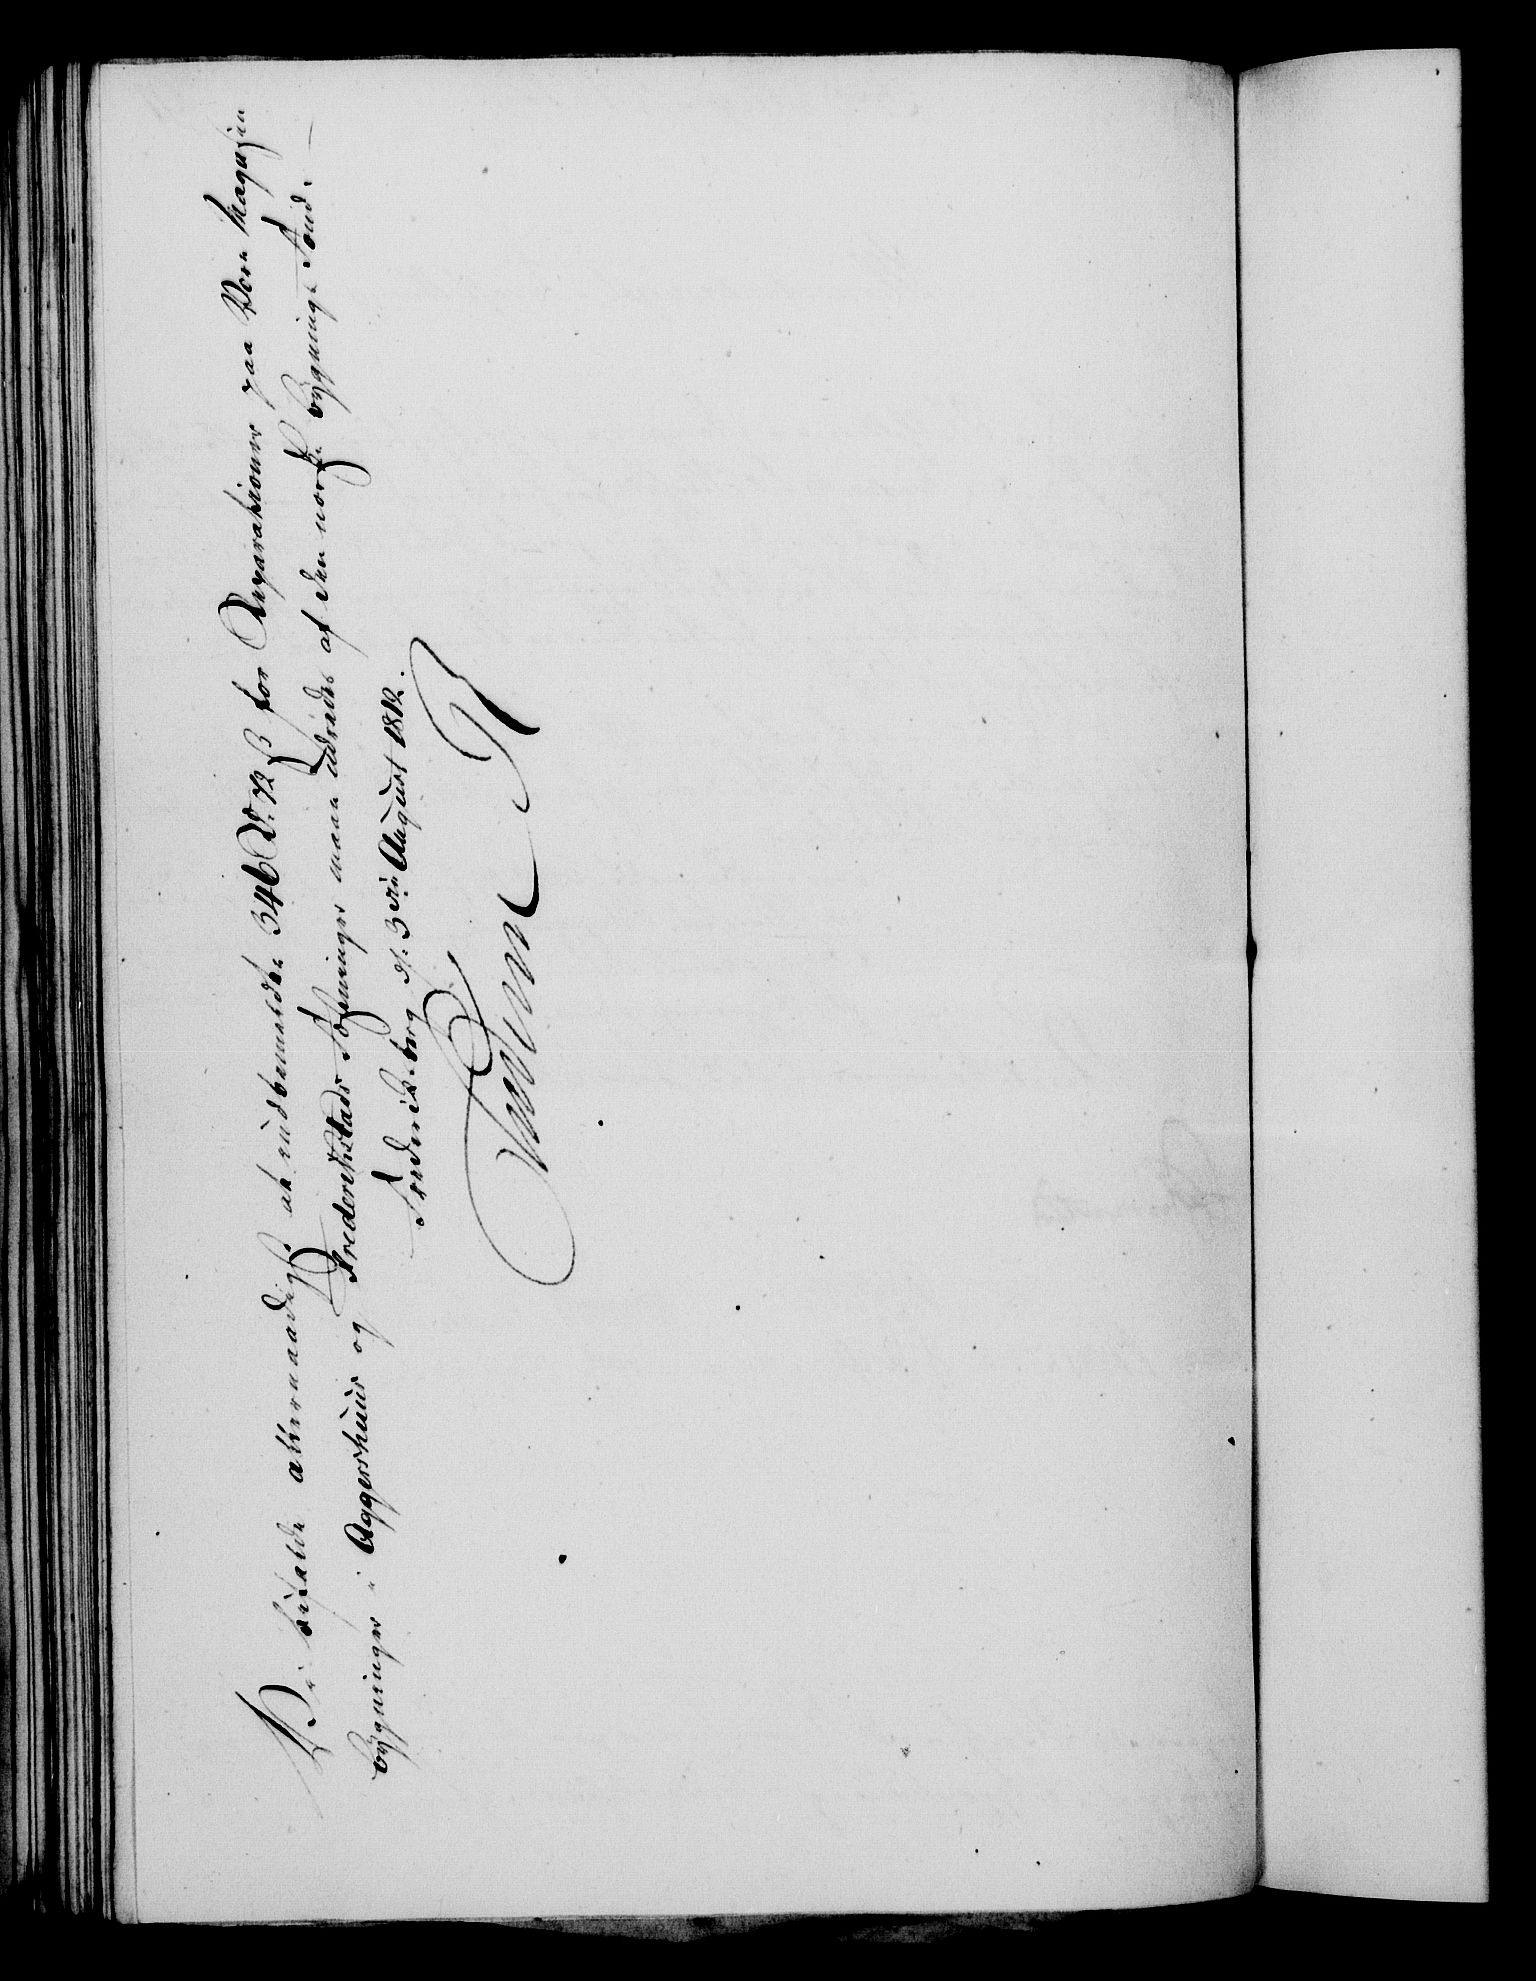 Vi bifalde allernaadigst at endbemeldte 346 Rd. 72 ß for Reparationer paa Vore Magazin
bygninger i Aggershuus og Frederikstads Fæstninger maae udredes af den norske Bygnings Fond. —
Frederiksberg d: 3die August 1812.
Frederik R